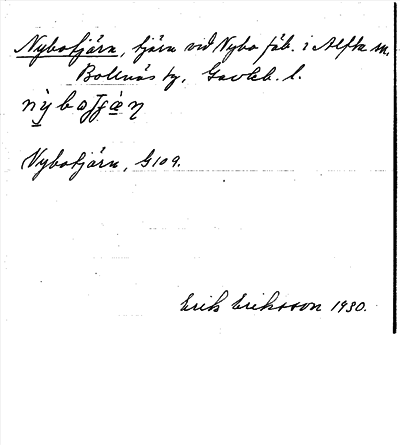 Nybotjärn, tjärn vid Nybo fäb. i Alfta sn.
Bollnäs tg, Gävleb. l.
Nybotjärn, G 109.
Erik Eriksson 1930.